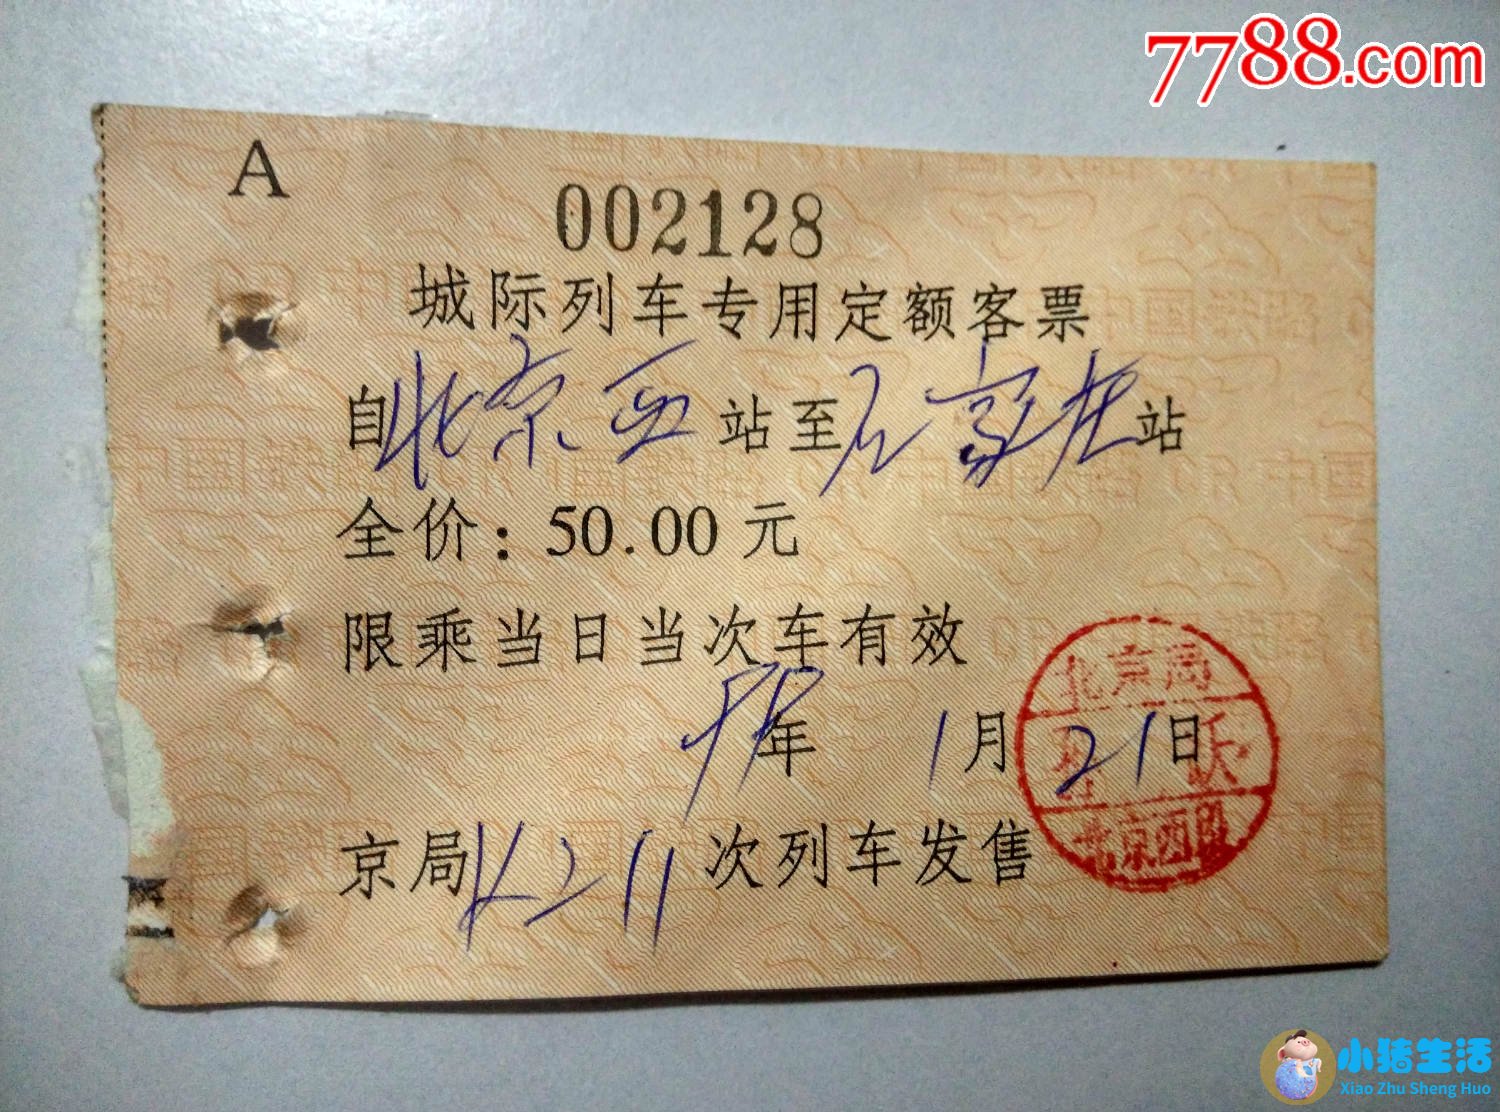 7788.com
A
002128
城际列车专用定额客票
自北京西站至石家庄站
全价：50.00元
限乘当日当次车有效
99年1月21日
京局K211次列车发售
北京局
北京西段
小猪生活
Xiao Zhu Sheng Huo